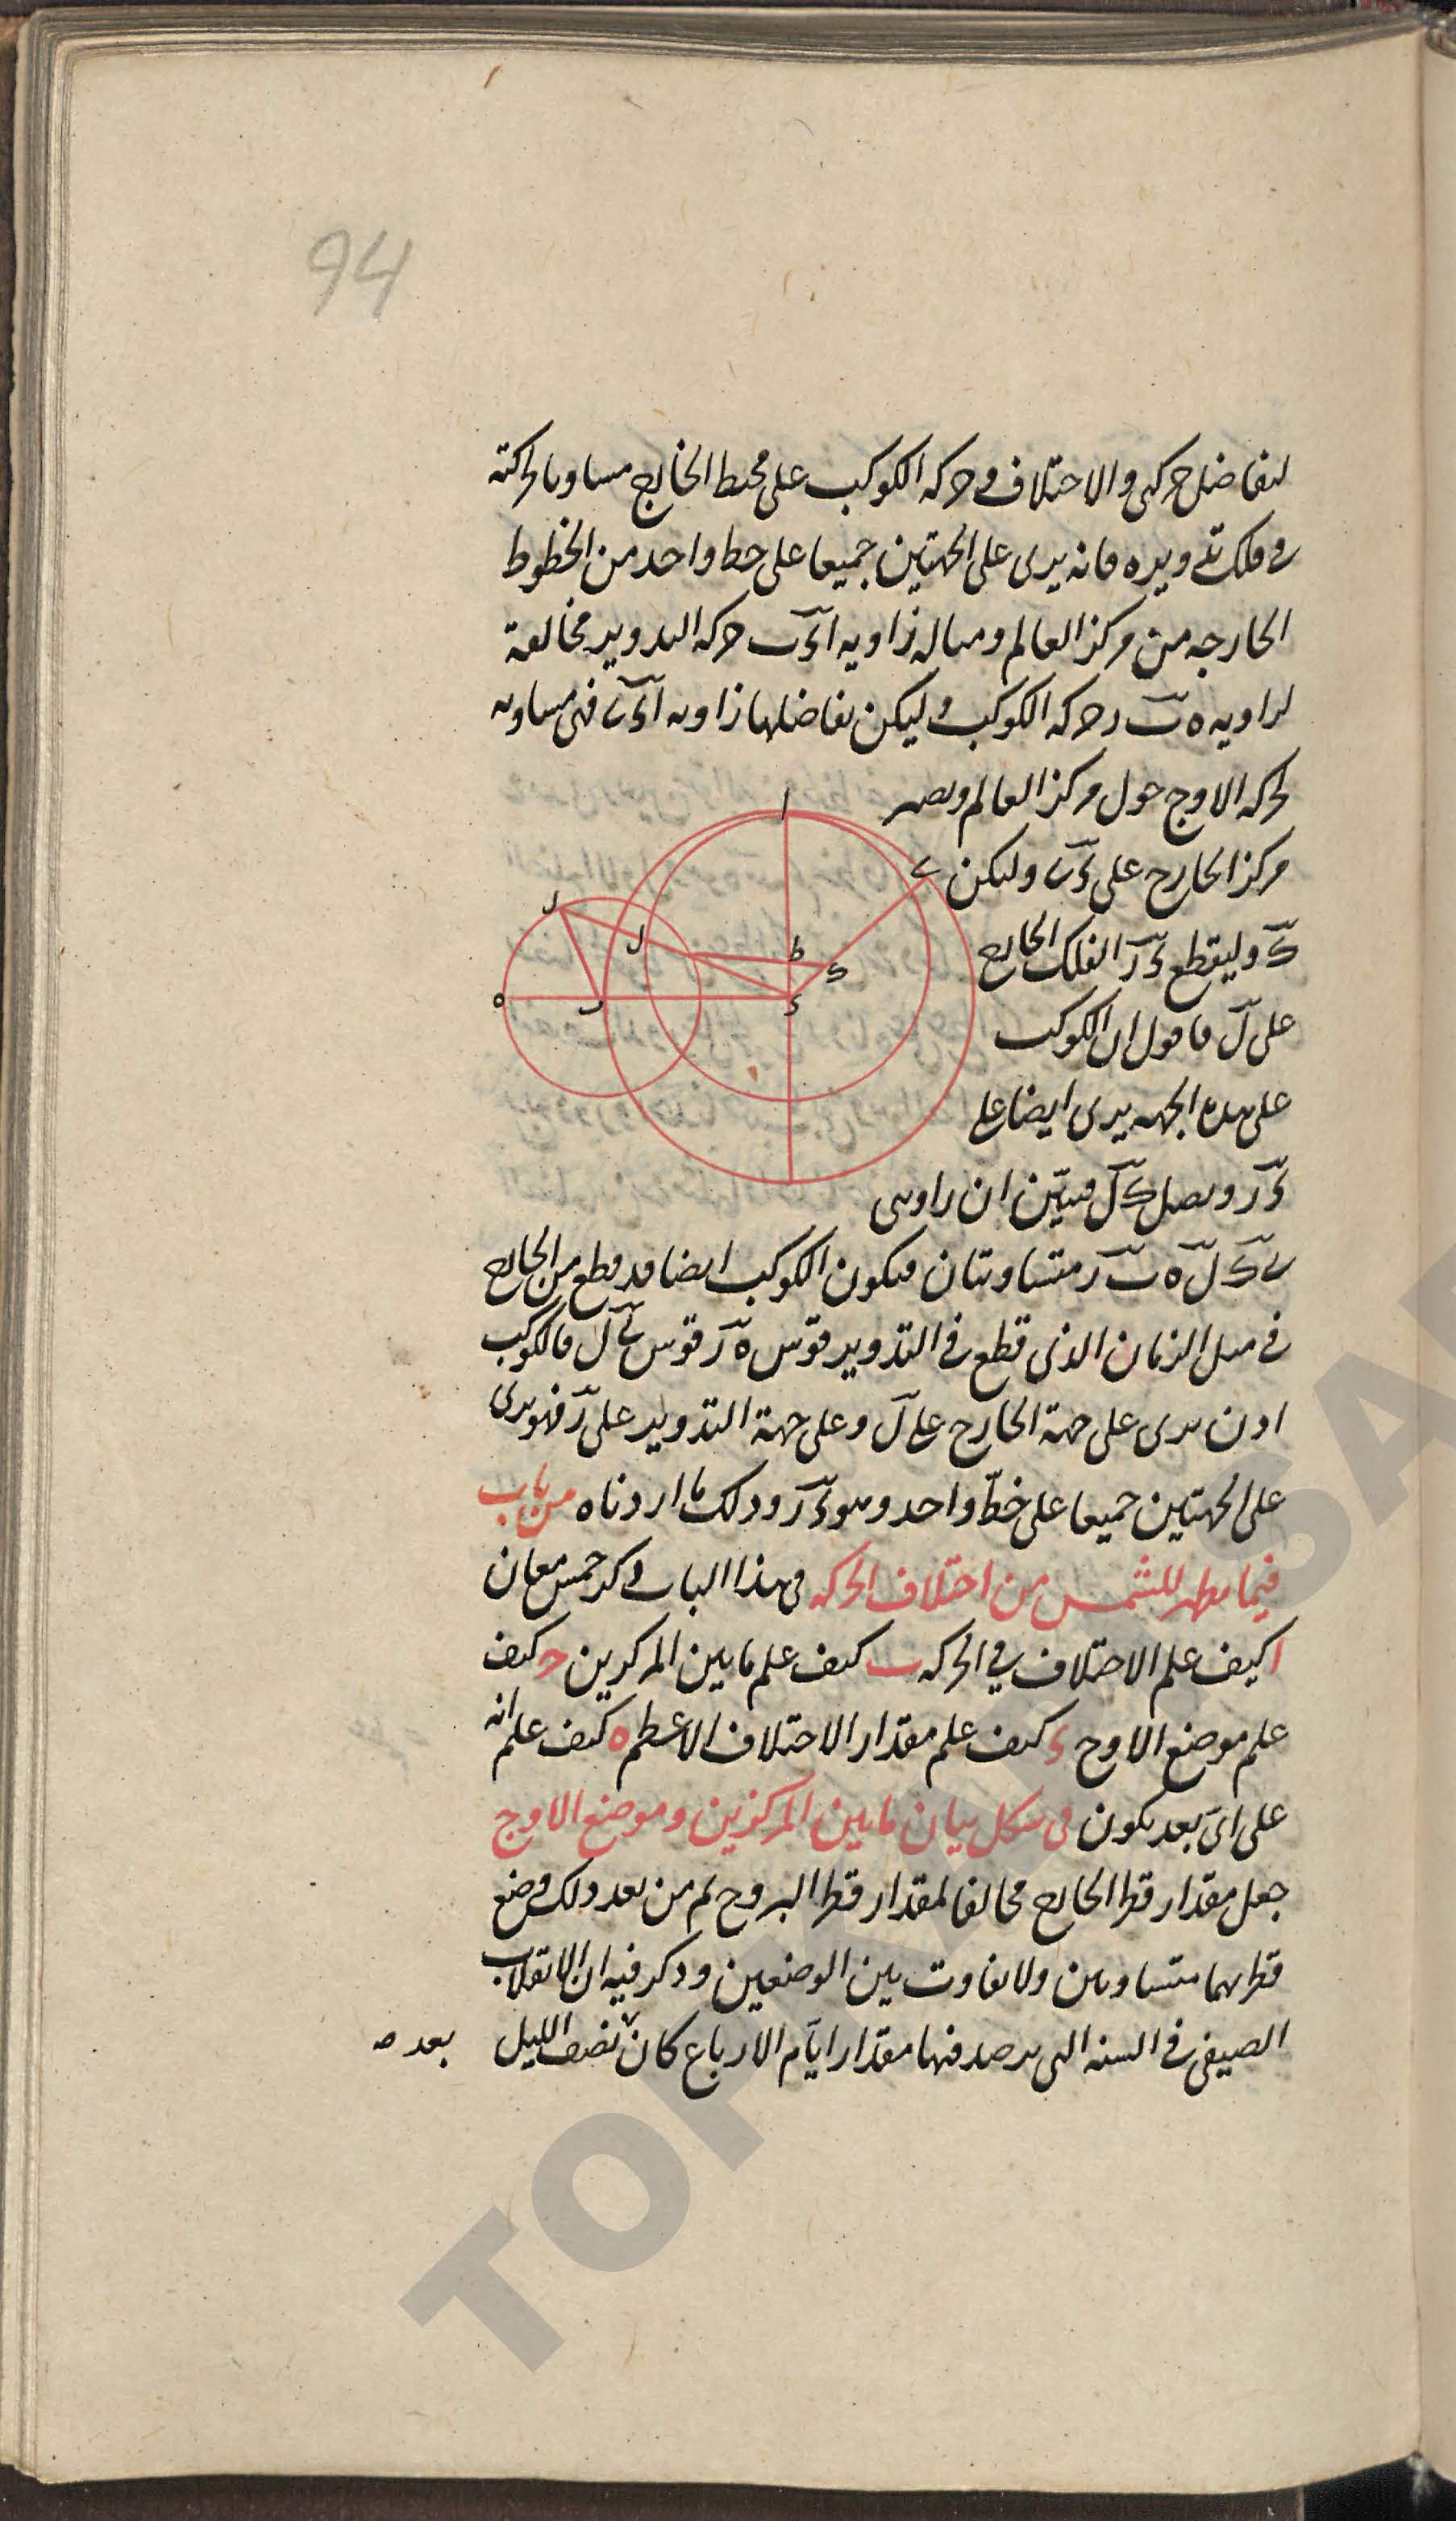 94
لتفاضل حركتى والاختلاف وحركه الكوكب على محيط الخارج مساويا لحركته
فى فلك تدويره فانه يرى على الجهتين جميعا على خط واحد من الخطوط
الخارجه من مركز العالم ومثاله زاويه ا ء ب حركه التدوير مخالفة
لزاويه ه ب ر حركه الكوكب وليكن تفاضلها زاويه ا ء ح فهى مساويه
لحركه الاوج حول مركز العالم ونصير
مركز الخارج على ء ح وليكن
ك وليقطع ء ر الفلك الخارج
على ل فاقول ان الكوكب
على هذه الجهه يرى ايضا على
ء ر ونصل ك ل فبين ان زاويتى
ح ك ل ه ب ر متساويتان فيكون الكوكب ايضا قد قطع من الخارج
فى مثل الزمان الذى قطع فى التدوير قوس ه ر قوس ح ل فالكوكب
اذن يرى على جهة الخارج على ل وعلى جهة التدوير على ر فهو يرى
على الجهتين جميعا على خط واحد وهو ء ر وذلك ما اردناه من باب
فيما يظهر للشمس من اختلاف الحركه فى هذا الباب ذكر خمس معان
ا كيف علم الاختلاف فى الحركه ب كيف علم ما بين المركزين ح كيف
علم موضع الاوج ء كيف علم مقدار الاختلاف الاعظم ه كيف علم انه
على اى بعد يكون فى شكل بيان ما بين المركزين وموضع الاوج
جعل مقدار قطر الخارج مخالفا لمقدار قطر البروج ثم من بعد ذلك وضع
قطريهما متساويين ولا تفاوت بين الوضعين وذكر فيه ان الانقلاب
الصيفى فى السنه التى يرصد فيها مقدار ايام الارباع كان نصف الليل
بعده
ا
ح
ط
ك
ء
ر
ل
ب
ه
TOPKAPI SA